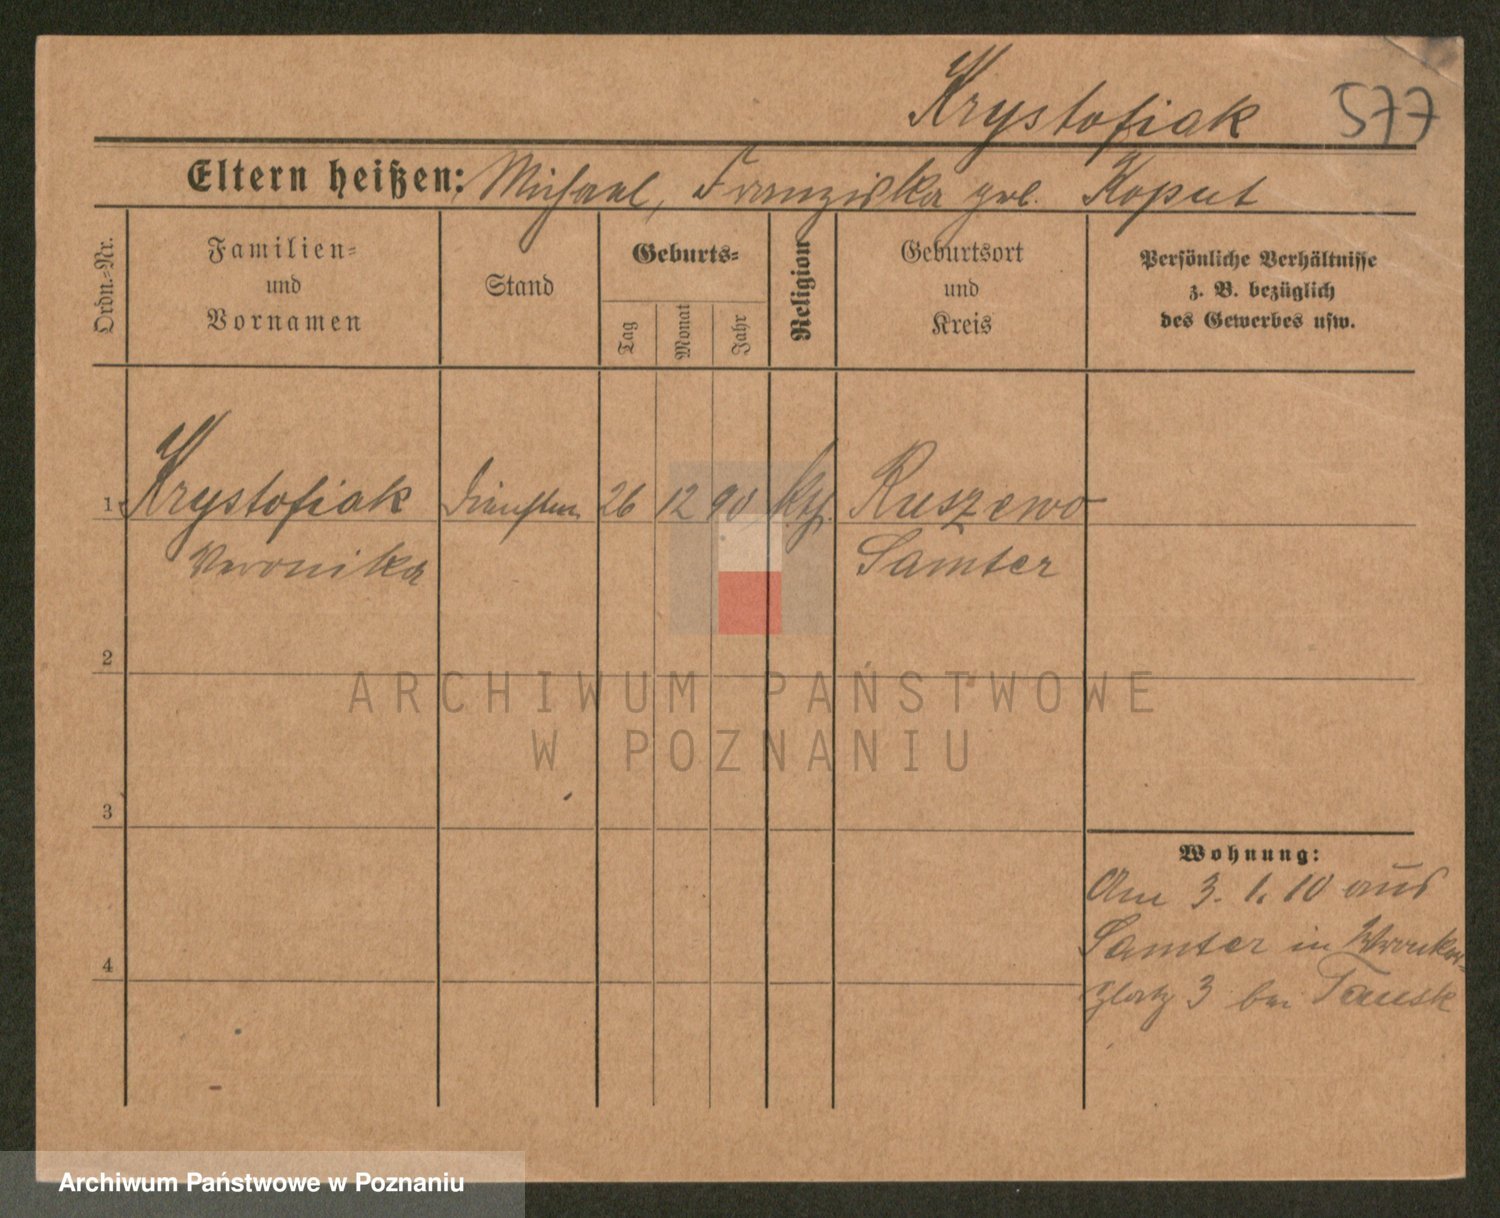 Krystofiak 577
Eltern heißen: Michael, Franziska geb. Koput
Ordn.-Nr.
Familien-
und
Vornamen
Stand
Geburts-
Tag
Monat
Jahr
Religion
Geburtsort
und
Kreis
Persönliche Verhältnisse
z. B. bezüglich
des Gewerbes usw.
1 Krystofiak 26 12 90 kth. Ruszewo
Veronika Samter
2
3
4
Wohnung:
Am 3. 1. 10 aus
Samter in Wronker-
platz 3 bei Tausk
ARCHIWUM PAŃSTWOWE
W POZNANIU
Archiwum Państwowe w Poznaniu